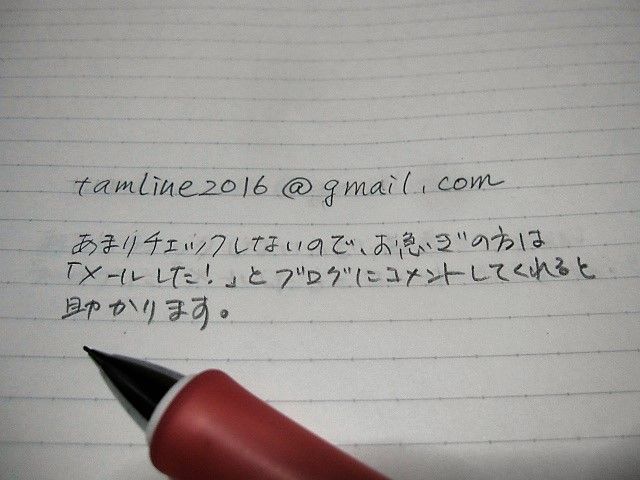 tamline2016@gmail.com
あまりチェックしないので、お急ぎの方は
「メールした!」とブログにコメントしてくれると
助かります。